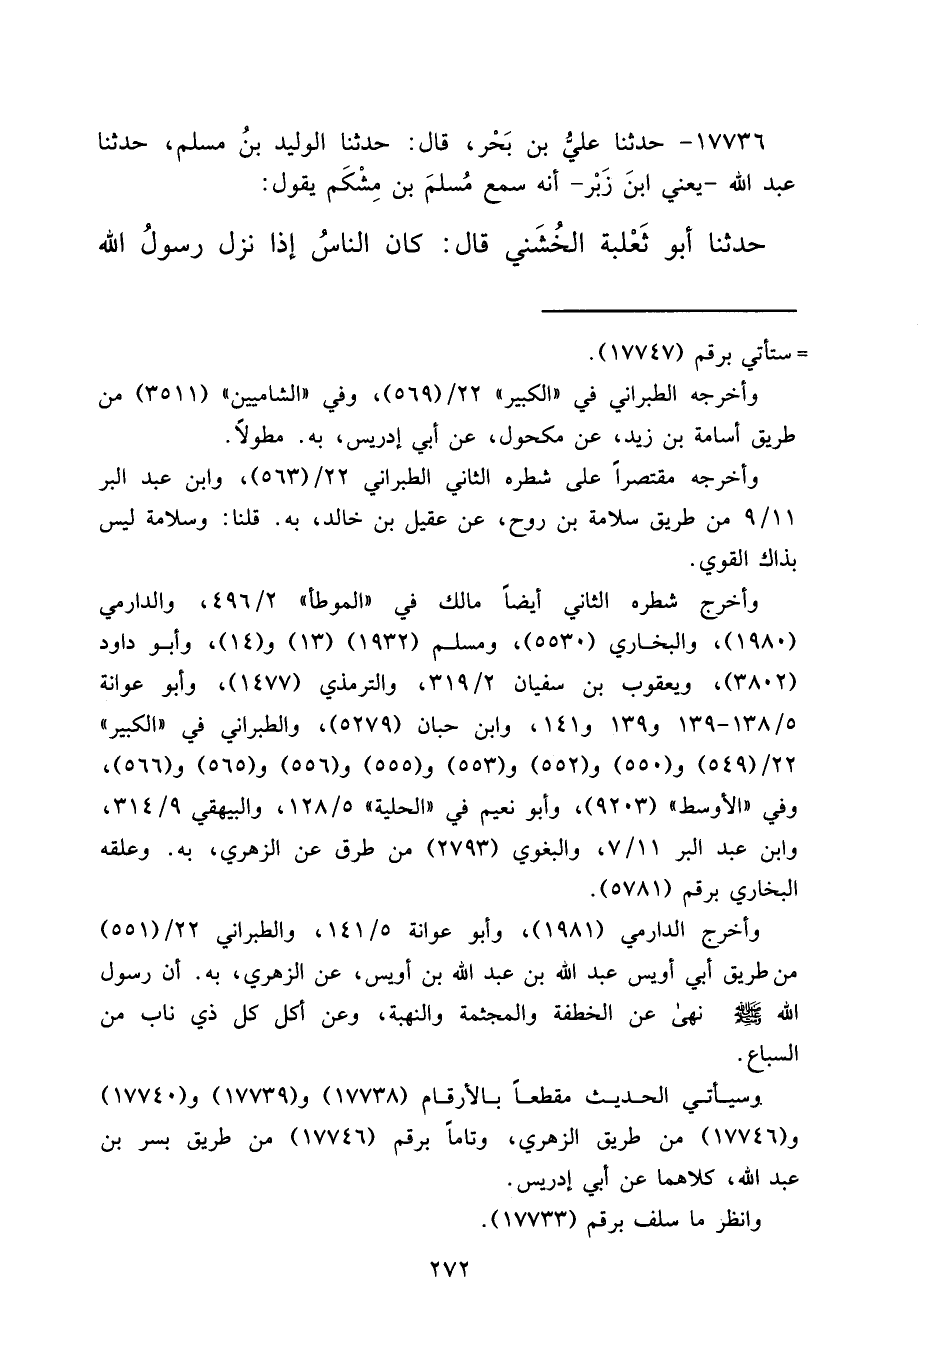 ١٧٧٣٦- حدثنا عليُّ بن بَحْر، قال: حدثنا الوليد بنُ مسلم، حدثنا
عبد الله -يعني ابنَ زَبْر- أنه سمع مُسلمَ بن مِشْكَم يقول:
حدثنا أبو ثَعْلبة الخُشَني قال: كان الناسُ إذا نزل رسولُ الله
= ستأتي برقم (١٧٧٤٧).
وأخرجه الطبراني في «الكبير» ٢٢/(٥٦٩)، وفي «الشاميين» (٣٥١١) من
طريق أسامة بن زيد، عن مكحول، عن أبي إدريس، به. مطولاً.
وأخرجه مقتصراً على شطره الثاني الطبراني ٢٢/(٥٦٣)، وابن عبد البر
٩/١١ من طريق سلامة بن روح، عن عقيل بن خالد، به. قلنا: وسلامة ليس
بذاك القوي.
وأخرج شطره الثاني أيضاً مالك في «الموطأ» ٤٩٦/٢، والدارمي
(١٩٨٠)، والبخاري (٥٥٣٠)، ومسلم (١٩٣٢) (١٣) و(١٤)، وأبو داود
(٣٨٠٢)، ويعقوب بن سفيان ٣١٩/٢، والترمذي (١٤٧٧)، وأبو عوانة
١٣٨/٥-١٣٩ و١٣٩ و١٤١، وابن حبان (٥٢٧٩)، والطبراني في «الكبير»
٢٢/(٥٤٩) و(٥٥٠) و(٥٥٢) و(٥٥٣) و(٥٥٥) و(٥٥٦) و(٥٦٥) و(٥٦٦)،
وفي «الأوسط» (٩٢٠٣)، وأبو نعيم في «الحلية» ١٢٨/٥، والبيهقي ٣١٤/٩،
وابن عبد البر ٧/١١، والبغوي (٢٧٩٣) من طرق عن الزهري، به. وعلقه
البخاري برقم (٥٧٨١).
وأخرج الدارمي (١٩٨١)، وأبو عوانة ١٤١/٥، والطبراني ٢٢/(٥٥١)
من طريق أبي أويس عبد الله بن عبد الله بن أويس، عن الزهري، به. أن رسول
الله ﷺ نهىٰ عن الخطفة والمجثمة والنهبة، وعن أكل كل ذي ناب من
السباع.
وسيأتي الحديث مقطعاً بالأرقام (١٧٧٣٨) و(١٧٧٣٩) و(١٧٧٤٠)
و(١٧٧٤٦) من طريق الزهري، وتاماً برقم (١٧٧٤٦) من طريق بسر بن
عبد الله، كلاهما عن أبي إدريس.
وانظر ما سلف برقم (١٧٧٣٣).
٢٧٢